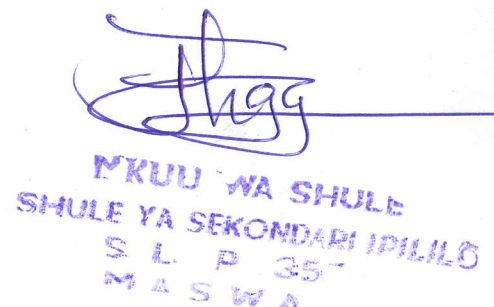 MKUU WA SHULE
SHULE YA SEKONDARI IPILILO
S L P 35
MASWA